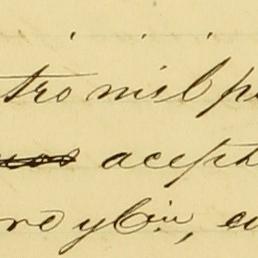 tro mil pe
acepta
re y Cia, en